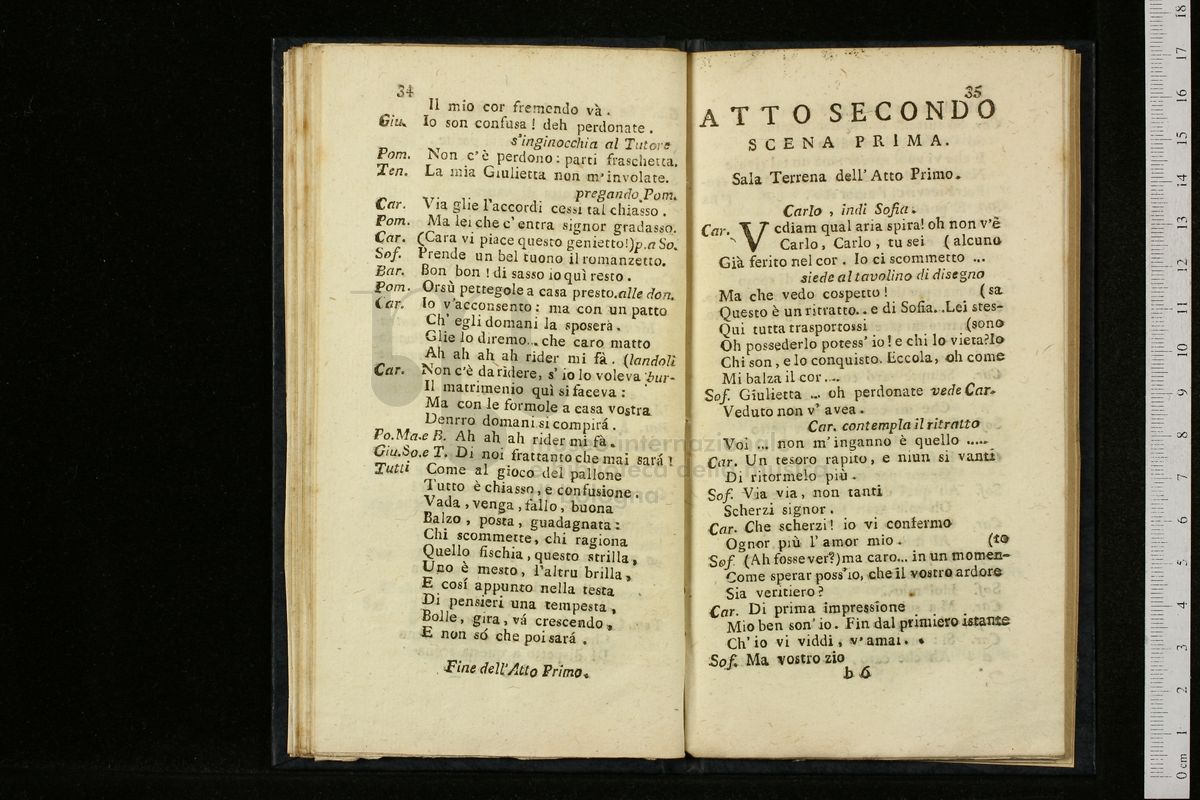 34
Il mio cor fremendo và.
Giu. Io son confusa! deh perdonate.
s'inginocchia al Tutore
Pom. Non c'è perdono: parti fraschetta.
Ten. La mia Giulietta non m'involate.
pregando Pom.
Car. Via glie l'accordi cessi tal chiasso.
Pom. Ma lei che c'entra signor gradasso.
Car. (Cara vi piace questo genietto!)p.a So.
Sof. Prende un bel tuono il romanzetto.
Bar. Bon bon! di sasso io quì resto.
Pom. Orsù pettegole a casa presto.alle don.
Car. Io v'acconsento: ma con un patto
Ch' egli domani la sposerà.
Glie lo diremo... che caro matto
Ah ah ah ah rider mi fà. (landoli
Car. Non c'è da ridere, s' io lo voleva bur-
Il matrimenio quì si faceva:
Ma con le formole a casa vostra
Denrro domani si compirá.
Po.Ma.e B. Ah ah ah rider mi fà.
Giu.So.e T. Di noi frattanto che mai sará!
Tutti Come al gioco del pallone
Tutto è chiasso, e confusione.
Vada, venga, fallo, buona
Balzo, posta, guadagnata:
Chi scommette, chi ragiona
Quello fischia, questo strilla,
Uno è mesto, l'altru brilla,
E cosí appunto nella testa
Di pensieri una tempesta,
Bolle, gira, vá crescendo,
E non só che poi sará.
Fine dell'Atto Primo.
35
ATTO SECONDO
SCENA PRIMA.
Sala Terrena dell'Atto Primo.
Carlo, indi Sofia.
Car. Vediam qual aria spira! oh non v'è
Carlo, Carlo, tu sei (alcuno
Già ferito nel cor. Io ci scommetto ...
siede al tavolino di disegno
Ma che vedo cospetto! (sa
Questo è un ritratto.. e di Sofia..Lei stes-
Qui tutta trasportossi (sono
Oh possederlo potess' io! e chi lo vieta?Io
Chi son, e lo conquisto. Eccola, oh come
Mi balza il cor....
Sof. Giulietta ... oh perdonate vede Car.
Veduto non v' avea.
Car. contempla il ritratto
Voi ... non m'inganno è quello .....
Car. Un tesoro rapito, e niun si vanti
Di ritormelo più.
Sof. Via via, non tanti
Scherzi signor.
Car. Che scherzi! io vi confermo
Ognor più l'amor mio. (to
Sof. (Ah fosse ver?)ma caro... in un momen-
Come sperar poss'io, che il vostro ardore
Sia veritiero?
Car. Di prima impressione
Mio ben son' io. Fin dal primiero istante
Ch' io vi viddi, v'amai. .
Sof. Ma vostro zio
b 6